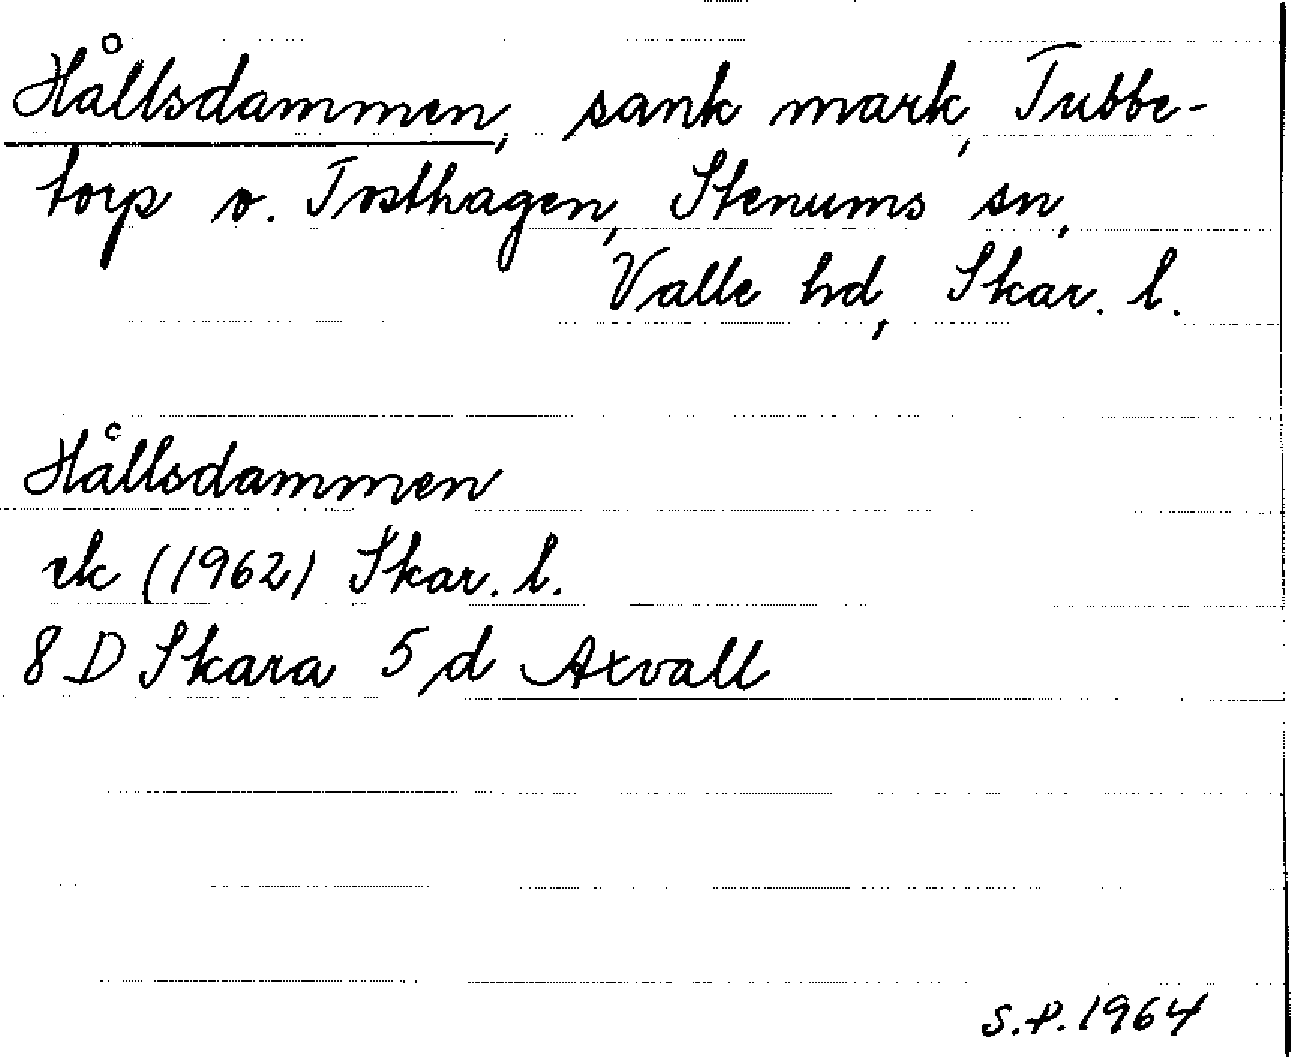 Hållsdammen, sank mark, Tubbe-
torp o. Tosthagen, Stenums sn,
Valle hd, Skar. l.
Hållsdammen
ek (1962) Skar. l.
8 D Skara 5 d Axvall
S.P. 1964